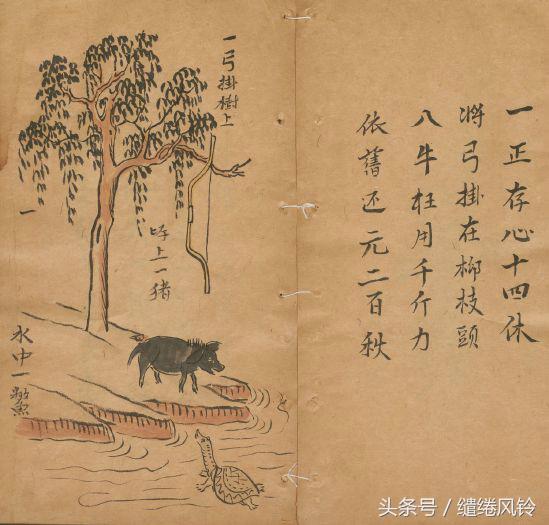 一正存心十四休
將弓掛在柳枝頭
八牛枉用千斤力
依舊还元二百秋
一弓掛樹上
上一猪
一
水中一鰲
头条号 / 缱绻风铃